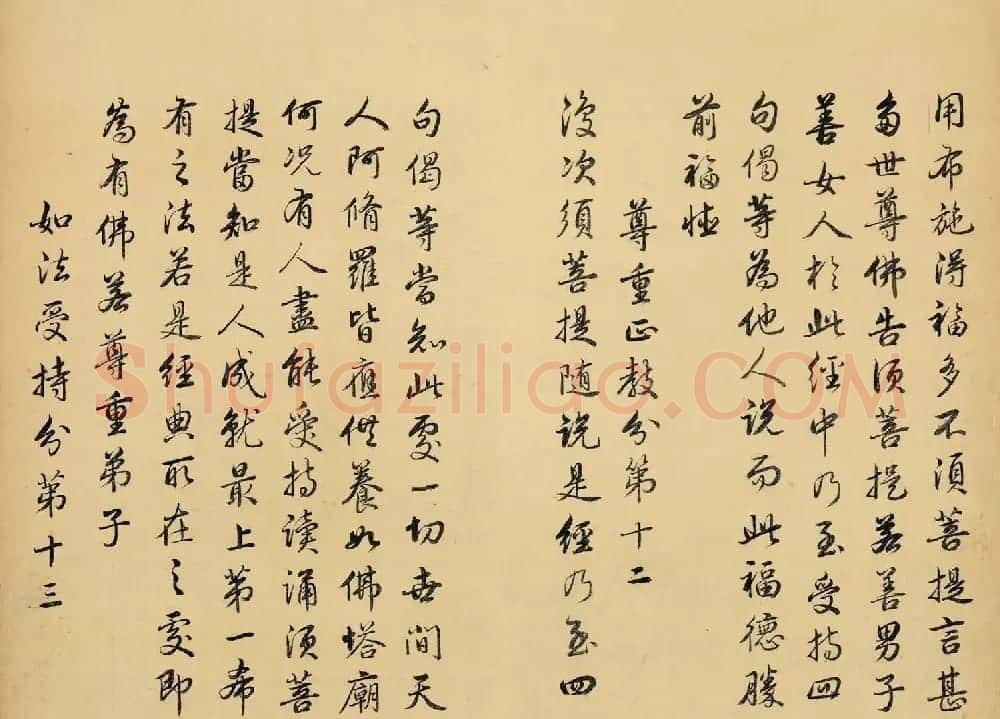 用布施得福多不須菩提言甚
多世尊佛告須菩提若善男子
善女人於此經中乃至受持四
句偈等為他人說而此福德勝
前福德
尊重正教分第十二
復次須菩提隨說是經乃至四
句偈等當知此處一切世間天
人阿脩羅皆應供養如佛塔廟
何況有人盡能受持讀誦須菩
提當知是人成就最上第一希
有之法若是經典所在之處即
為有佛若尊重弟子
如法受持分第十三
Shufaziliao.COM